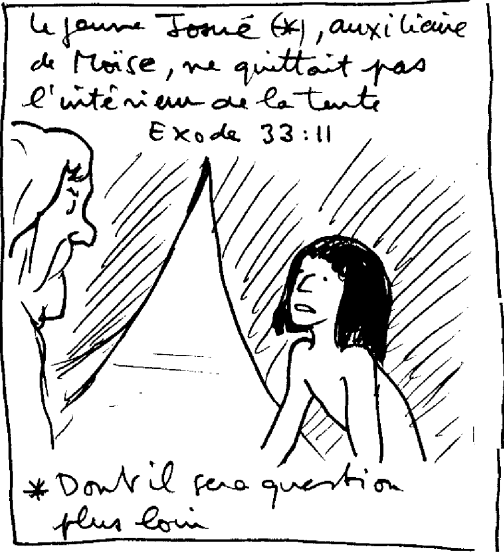 le jeune Josué (*), auxiliaire
de Moïse, ne quittait pas
l'intérieur de la tente
Exode 33:11
* Dont il sera question
plus loin